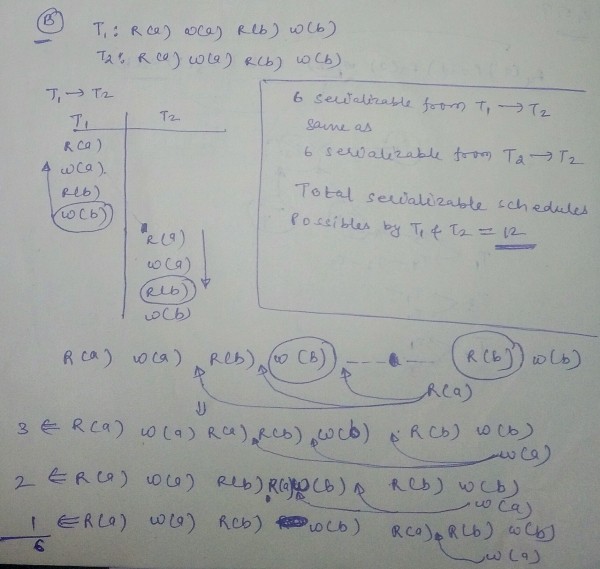 B
T1: R(a) w(a) R(b) w(b)
T2: R(a) w(a) R(b) w(b)
T1 → T2
T1 T2
R(a)
w(a).
R(b)
w(b)
R(a)
w(a)
R(b)
w(b)
6 serializable from T1 → T2
same as
6 serializable from T2 → T2
Total serializable schedules
Possibles by T1 & T2 = 12
R(a) w(a) R(b) w(B) - - - - - R(b) w(b)
R(a)
⇓
3 ⇐ R(a) w(a) R(a) R(b) w(b) R(b) w(b)
w(a)
2 ⇐ R(a) w(a) R(b) R(a) w(b) R(b) w(b)
w(a)
1 ⇐ R(a) w(a) R(b) w(b) R(a) R(b) w(b)
6
w(a)